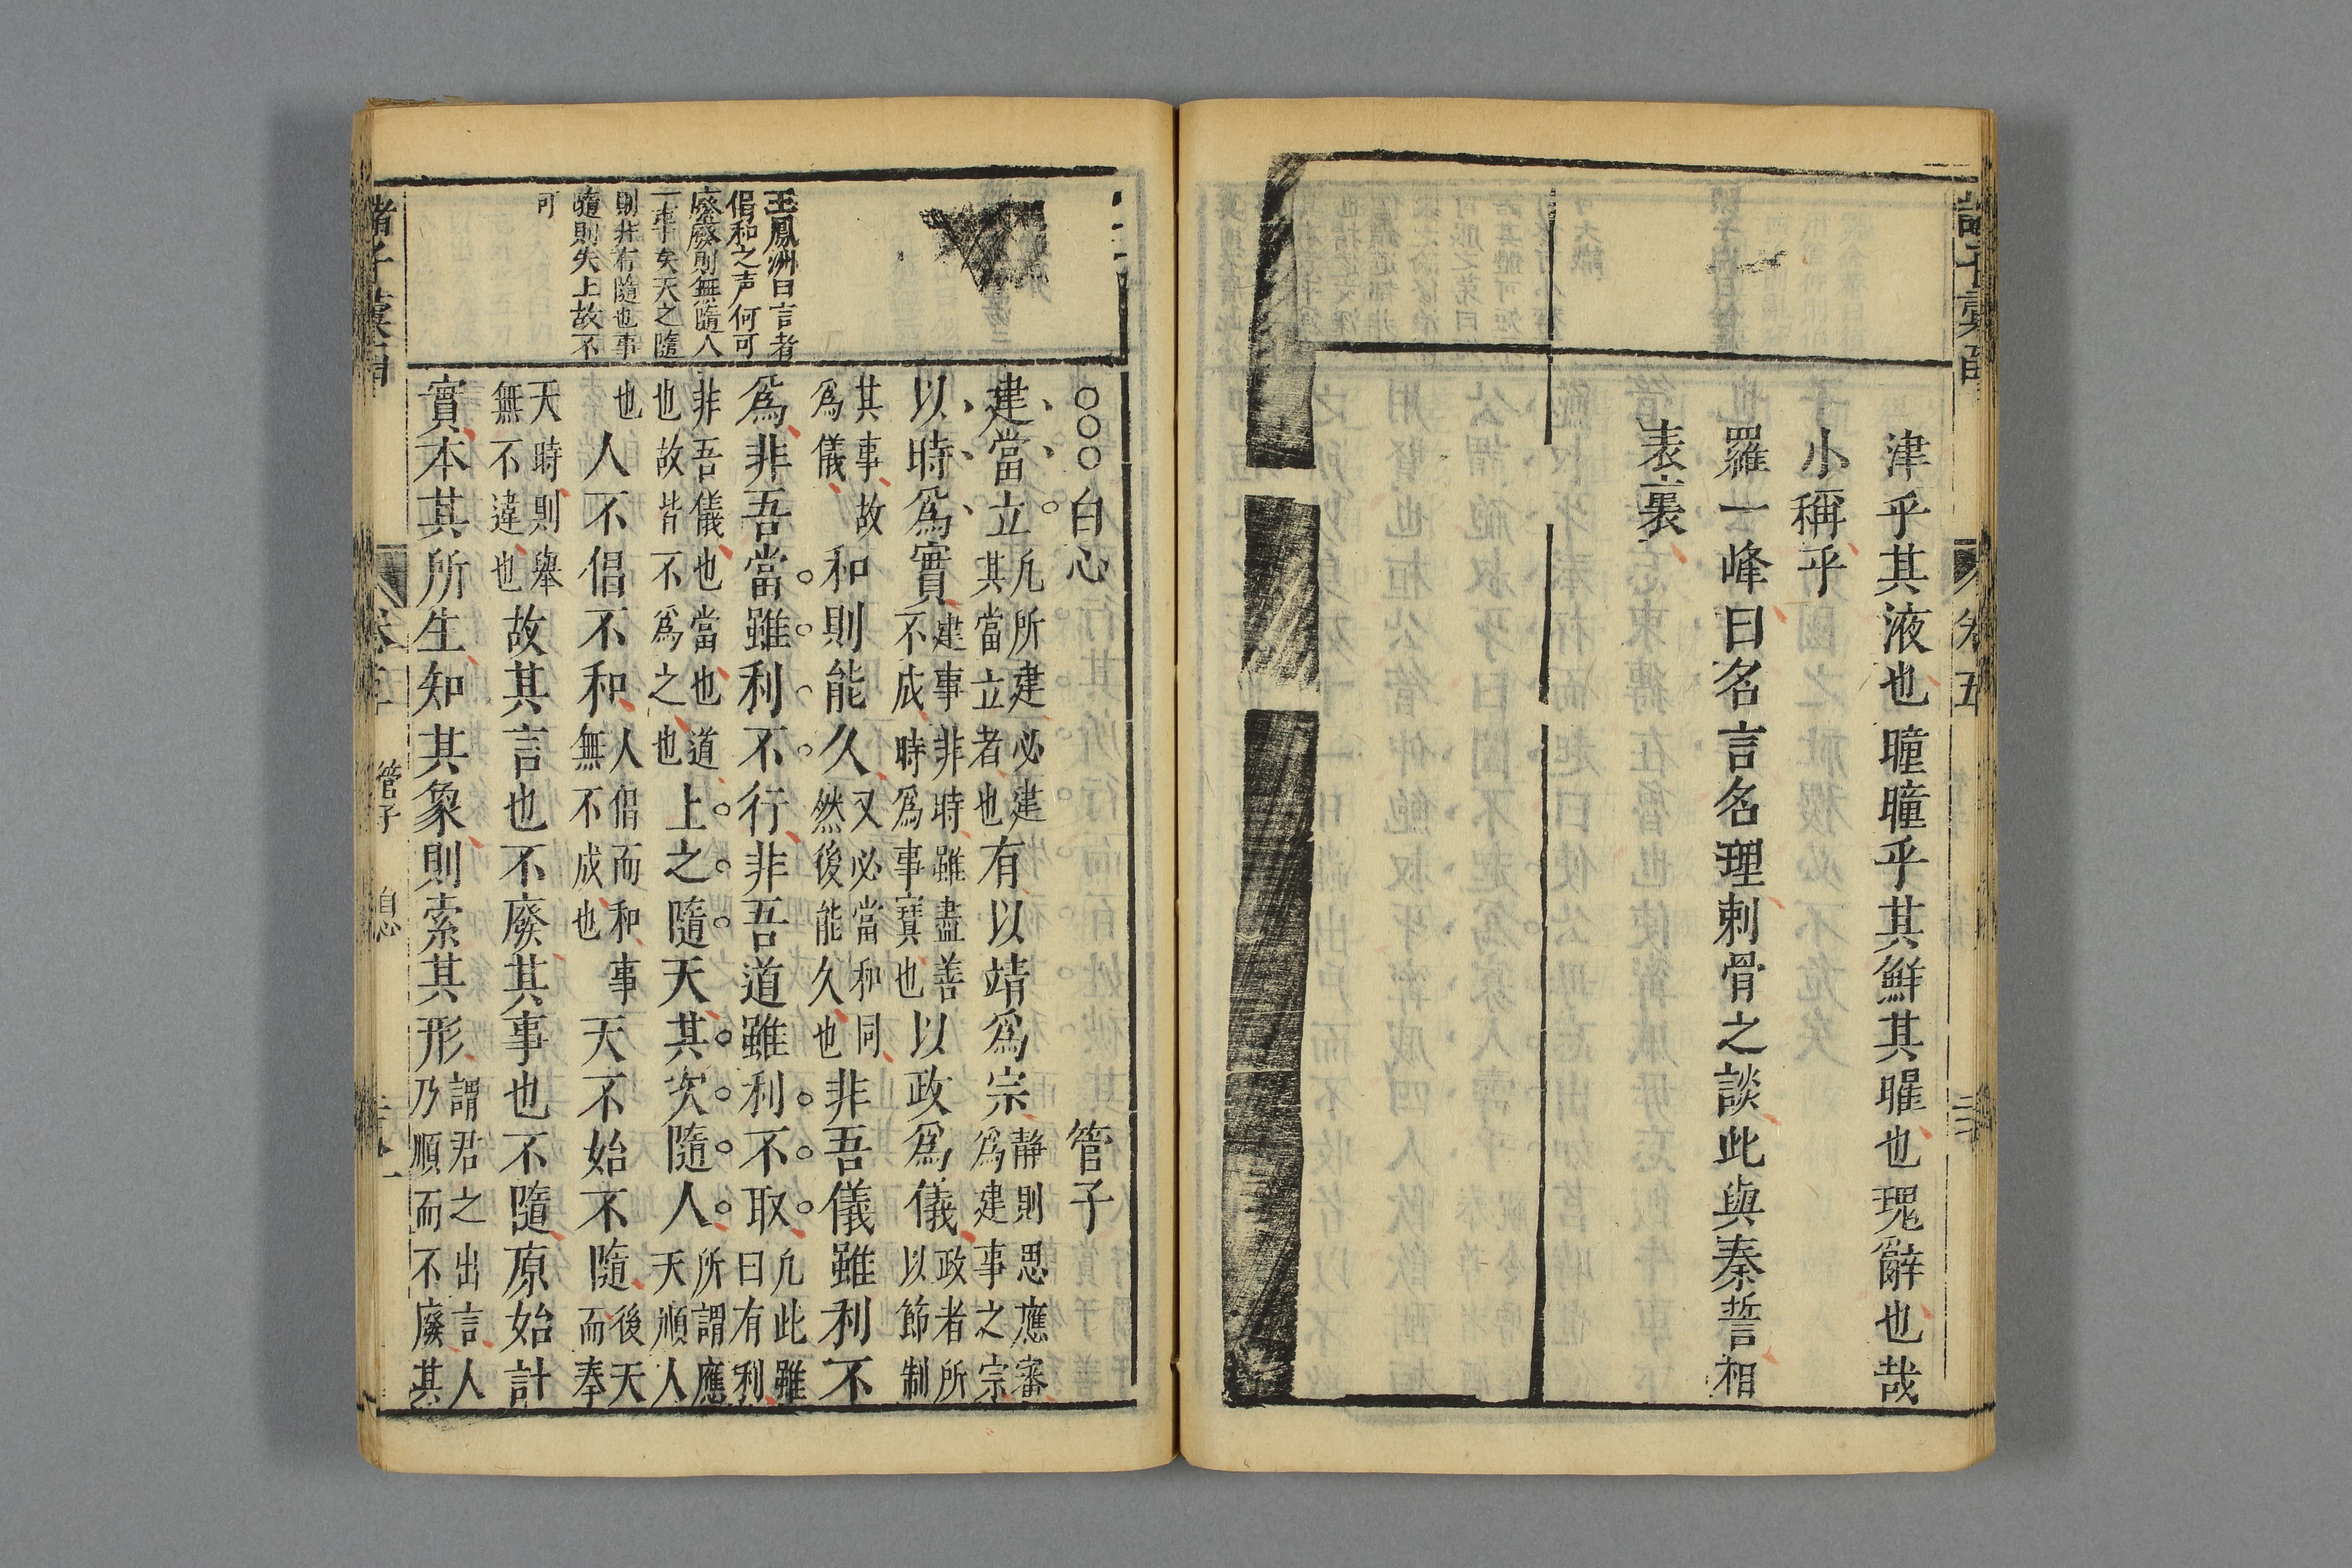 津乎其液也瞳瞳乎其鮮其曜也瑰辭也哉
小稱乎
羅一峰曰名言名理刺骨之談此與秦誓相
表裏
卷五
王鳳洲曰言者
倡和之声何可
廢廢則無隨人
一事矣天之隨
則并有隨也事
隨則失上故不
可
○○○白心 管子
建當立凡所建必建其當立者也有以靖爲宗静則思應審爲建事之宗
以時爲寶建事非時雖盡善不成時爲事寶也以政爲儀政者所以節制
其事故爲儀和則能久又必當和同然後能久也非吾儀雖利不
爲非吾當雖利不行非吾道雖利不取凡此雖曰有利
非吾儀也當也道也故皆不爲之也上之隨天其次隨人所謂應天順人
也人不倡不和人倡而和事無不成也天不始不隨後天而奉
天時則舉無不違也故其言也不廢其事也不隨原始計
實本其所生知其象則索其形謂君之出言人乃順而不廢其
管子